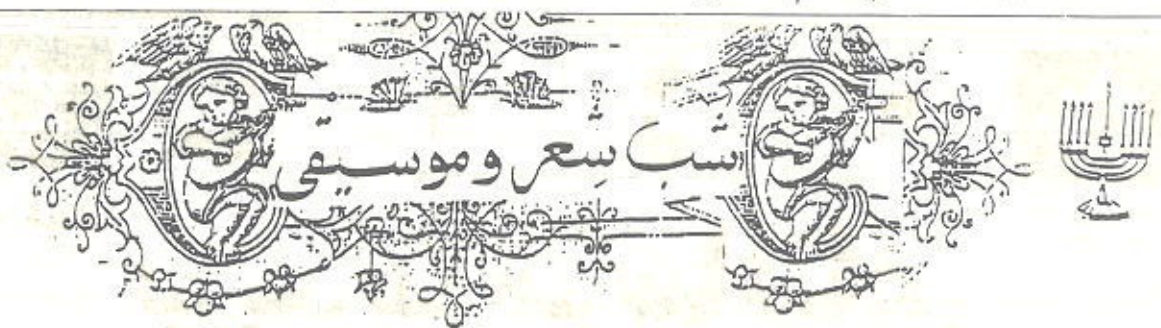 شب شعر و موسیقی